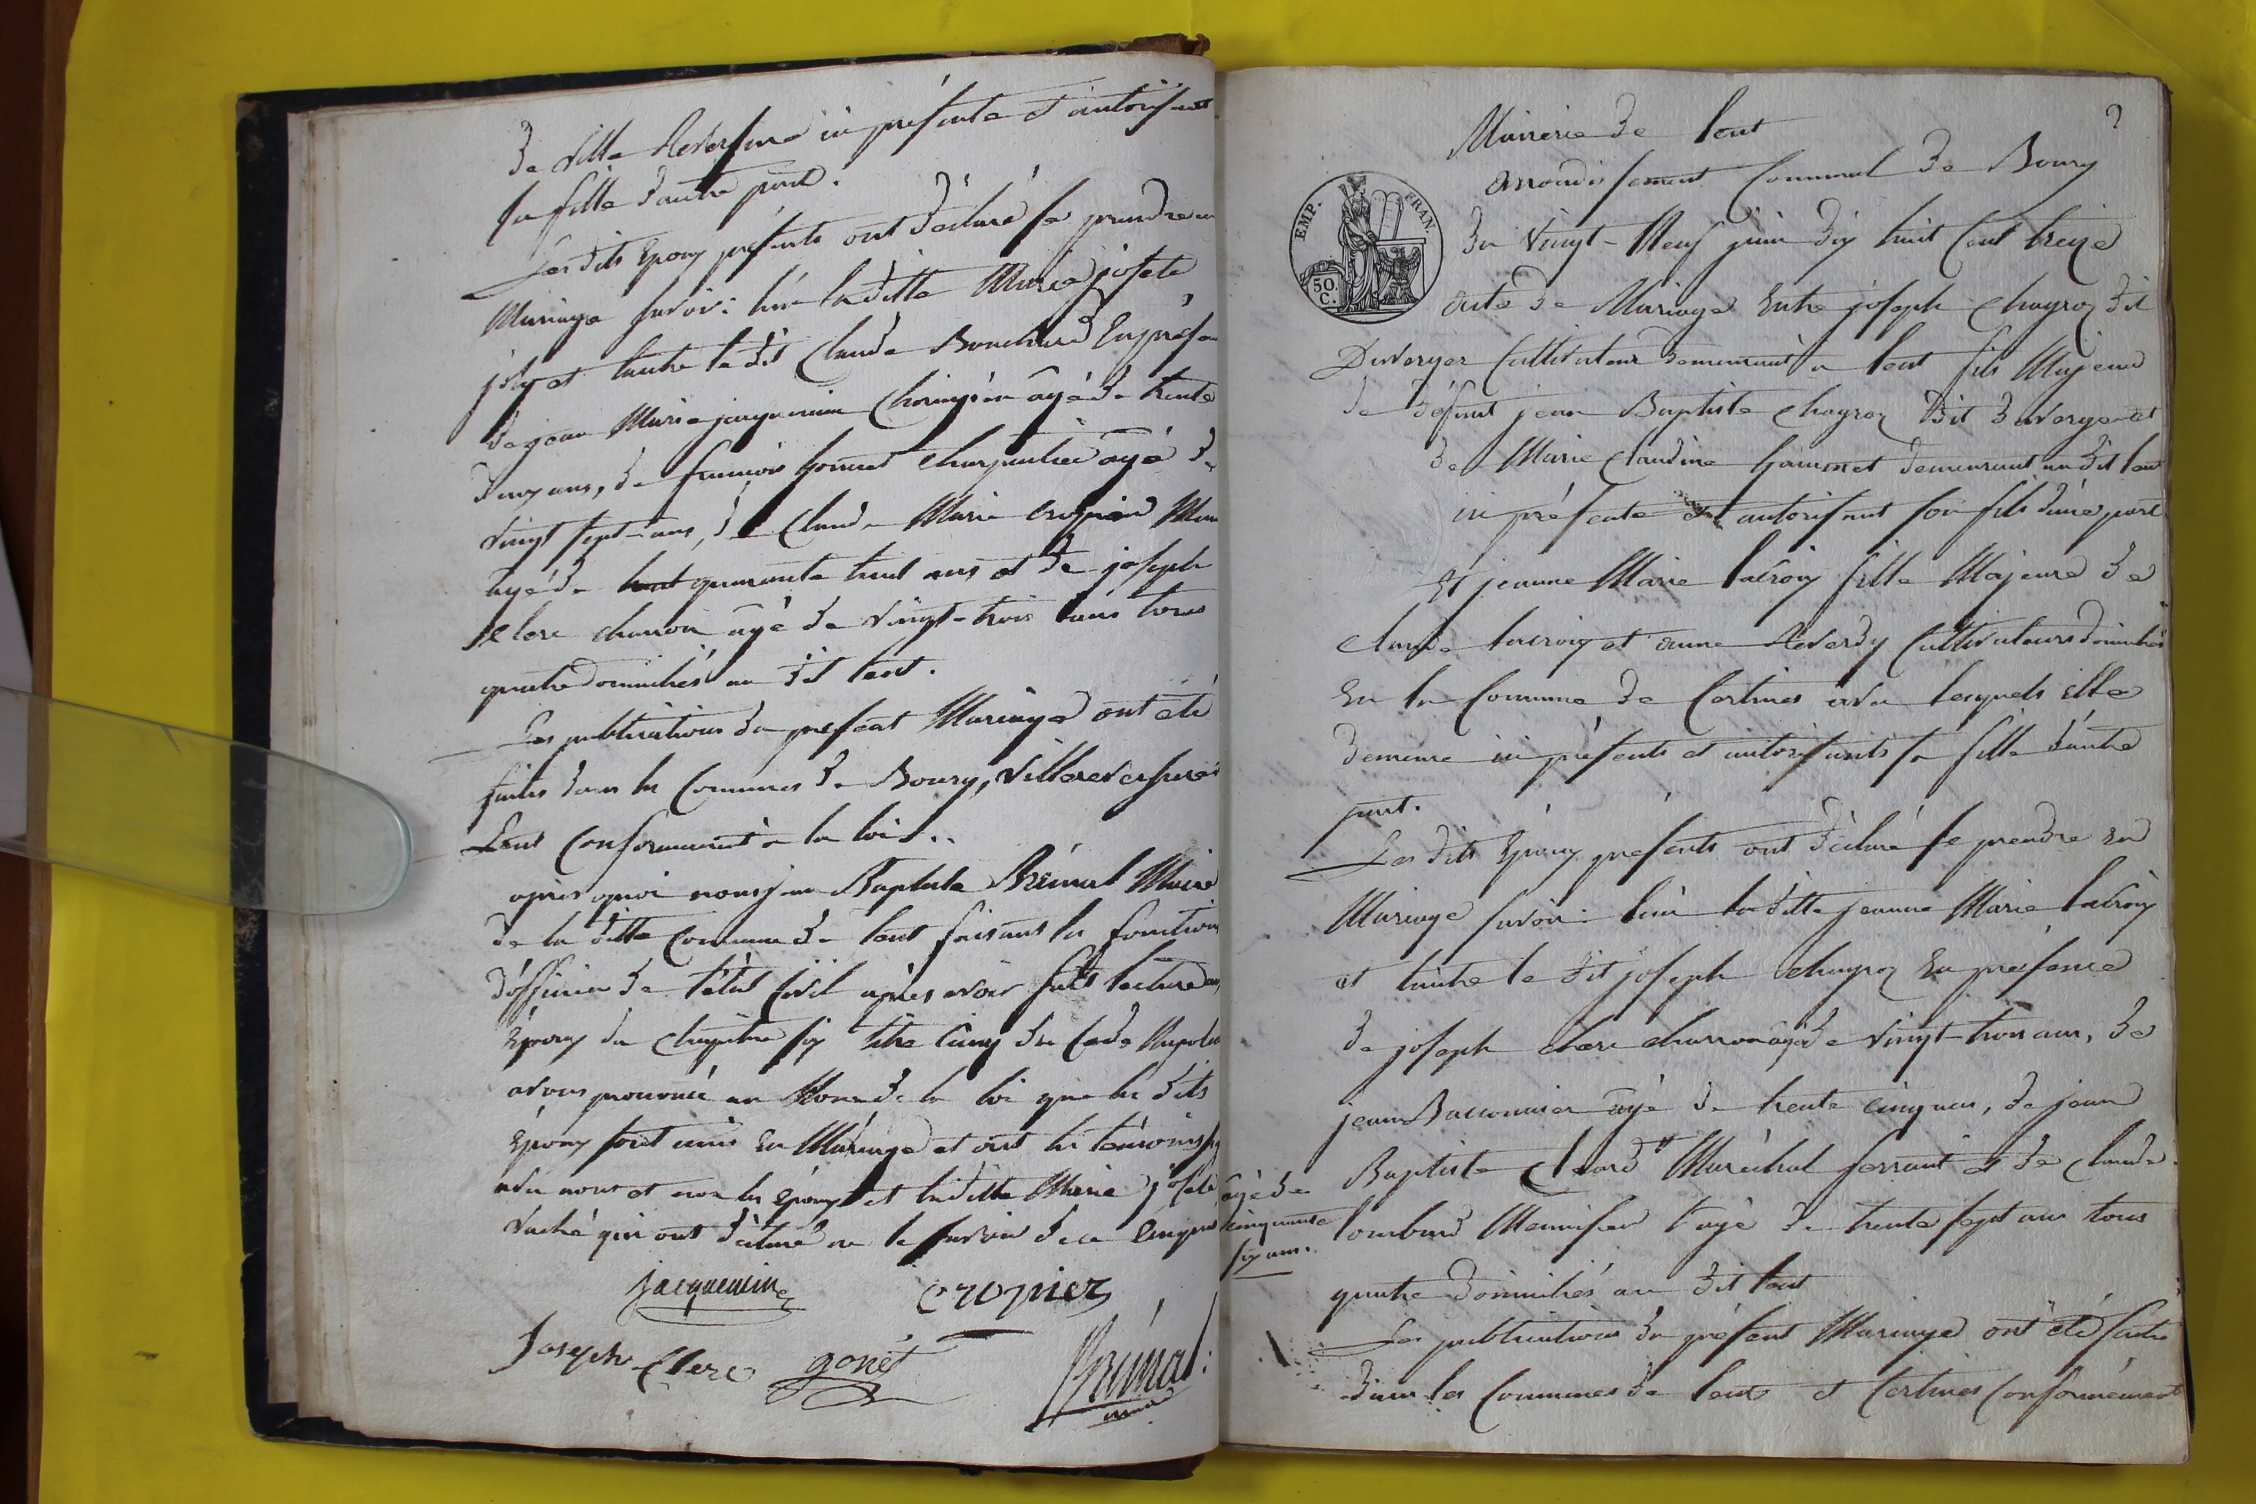 de Ville Reversure ici présente et autorisant
sa fille d'autre part.
Les dits Epoux présents ont déclaré se prendre en
Mariage savoir: l'un la ditte Marie josete
et l'autre le dit Claude Bouchard En présen
de jean Marie jacquemin âgé de trente
deux ans, de françois gonnet charpentier âgé de
vingt sept ans, de Claude Marie cropier
âgé de quarante huit ans et de joseph
Clerc charron âgé de vingt-trois ans tous
quatre domiciliés au dit Lent.
Les publications du présent Mariage ont été
faites dans les Communes de Bourg, Villereversure
Lent Conformément à la loi..
après quoi nous jean Baptiste Brémal Maire
de la ditte Commune de Lent faisant les fonctions
d'officier de l'état Civil après avoir fait lecture aux
Epoux du chapitre six titre Cinq du Code Napoléon
avons prononcé au Nom de la loi que les dits
Epoux sont unis En Mariage et ont les témoins signé
avec nous et non les époux et la ditte Marie josete
qui ont déclaré ne le savoir de ce Enquis
jacquemin cropier
Joseph Clerc gonet
Brémal
Mairerie de Lent
2
arrondissement Communal de Bourg
EMP. FRAN.
50. C.
Du Vingt-Neuf juin dix huit Cent treize
acte de Mariage Entre joseph chagroz dit
Duverger Cultivateur demeurant a Lent fils Majeur
de défunt jean Baptiste chagroz dit duverger et
de Marie Claudine demeurant au dit Lent
ici présente et autorisant son fils d'une part
Et jeanne Marie lacroix fille Majeure de
Claude lacroix et anne Reverdy Cultivateurs domiciliés
En la Commune de Certines avec lesquels elle
demeure ici présents et autorisants sa fille d'autre
part.
Les dits Epoux présents ont déclaré se prendre en
Mariage savoir: l'un la ditte jeanne Marie lacroix
et l'autre le dit joseph chagroz En présence
de joseph clerc charron âgé de vingt-trois ans, de
jean âgé de trente cinq ans, de jean
Baptiste Maréchal ferrant et de Claude
âgé de
cinquante
six ans.
lombard âgé de trente sept ans tous
quatre domiciliés au dit Lent
Les publications du présent Mariage ont été faites
dans les Communes de Lent et Certines Conformément